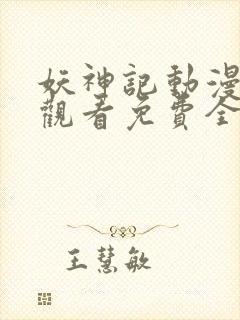 妖神記動漫
觀看免費全
王慧敏